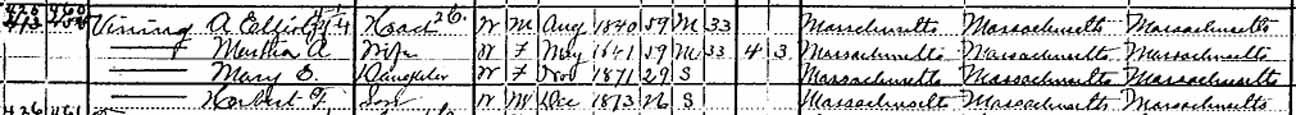 425 460 Vining A Elliot Head W M Aug 1840 59 M 33 Massachusetts Massachusetts Massachusetts
—— Martha A. Wife W F May 1841 59 M 33 4 3 Massachusetts Massachusetts Massachusetts
—— Mary E. Daughter W F Nov 1871 29 S Massachusetts Massachusetts Massachusetts
—— Herbert F. Son W M Dec 1873 26 S Massachusetts Massachusetts Massachusetts
426 461